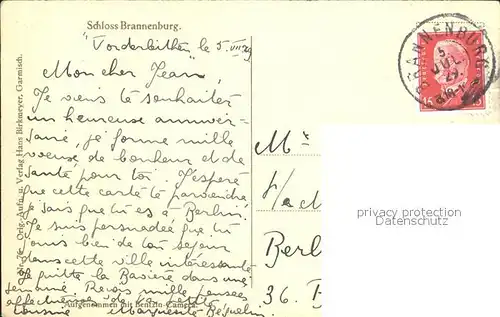 Schloss Brannenburg.
"Vorderleithen" le 5. VII. 29
Mon cher Jean,
Je viens te souhaiter
un heureuse anniver-
saire, je forme mille
voeux de bonheur et de
santé pour toi. J'espère
que cette carte te parviendra
je sais que tu es à Berlin.
Je suis persuadée que tu
jouis bien de ton séjour
dans cette ville intéressante
Je quitte la Bavière dans une
semaine. Reçois mille pensées
affectueuses de ta petite
cousine Marguerite Béguelin.
Aufgenommen mit Bentzin-Camera.
Orig.-Aufn. u. Verlag Hans Birkmeyer, Garmisch.
BRANNENBURG
5
JUL
29
15
Mr
Berl
36.
privacy protection
AnsichtskartenNr.